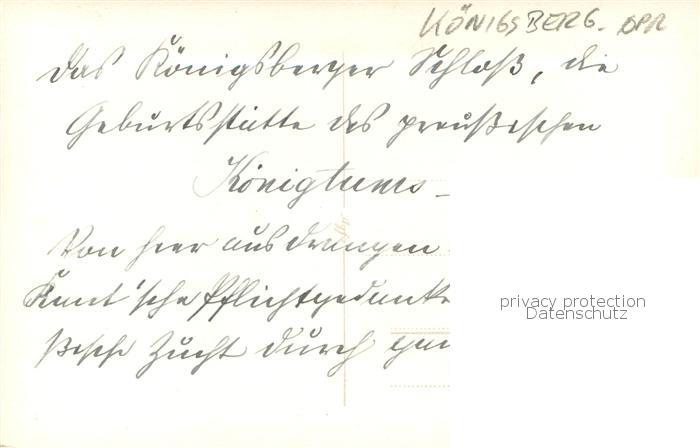 KÖNIGSBERG. OPR
Das Königsberger Schloß, die
Geburtsstätte des preußischen
Königtums –
Von hier aus drangen
Kant'sche Pflichtgedanke
ßische Zucht durch gan
privacy protection
Datenschutz